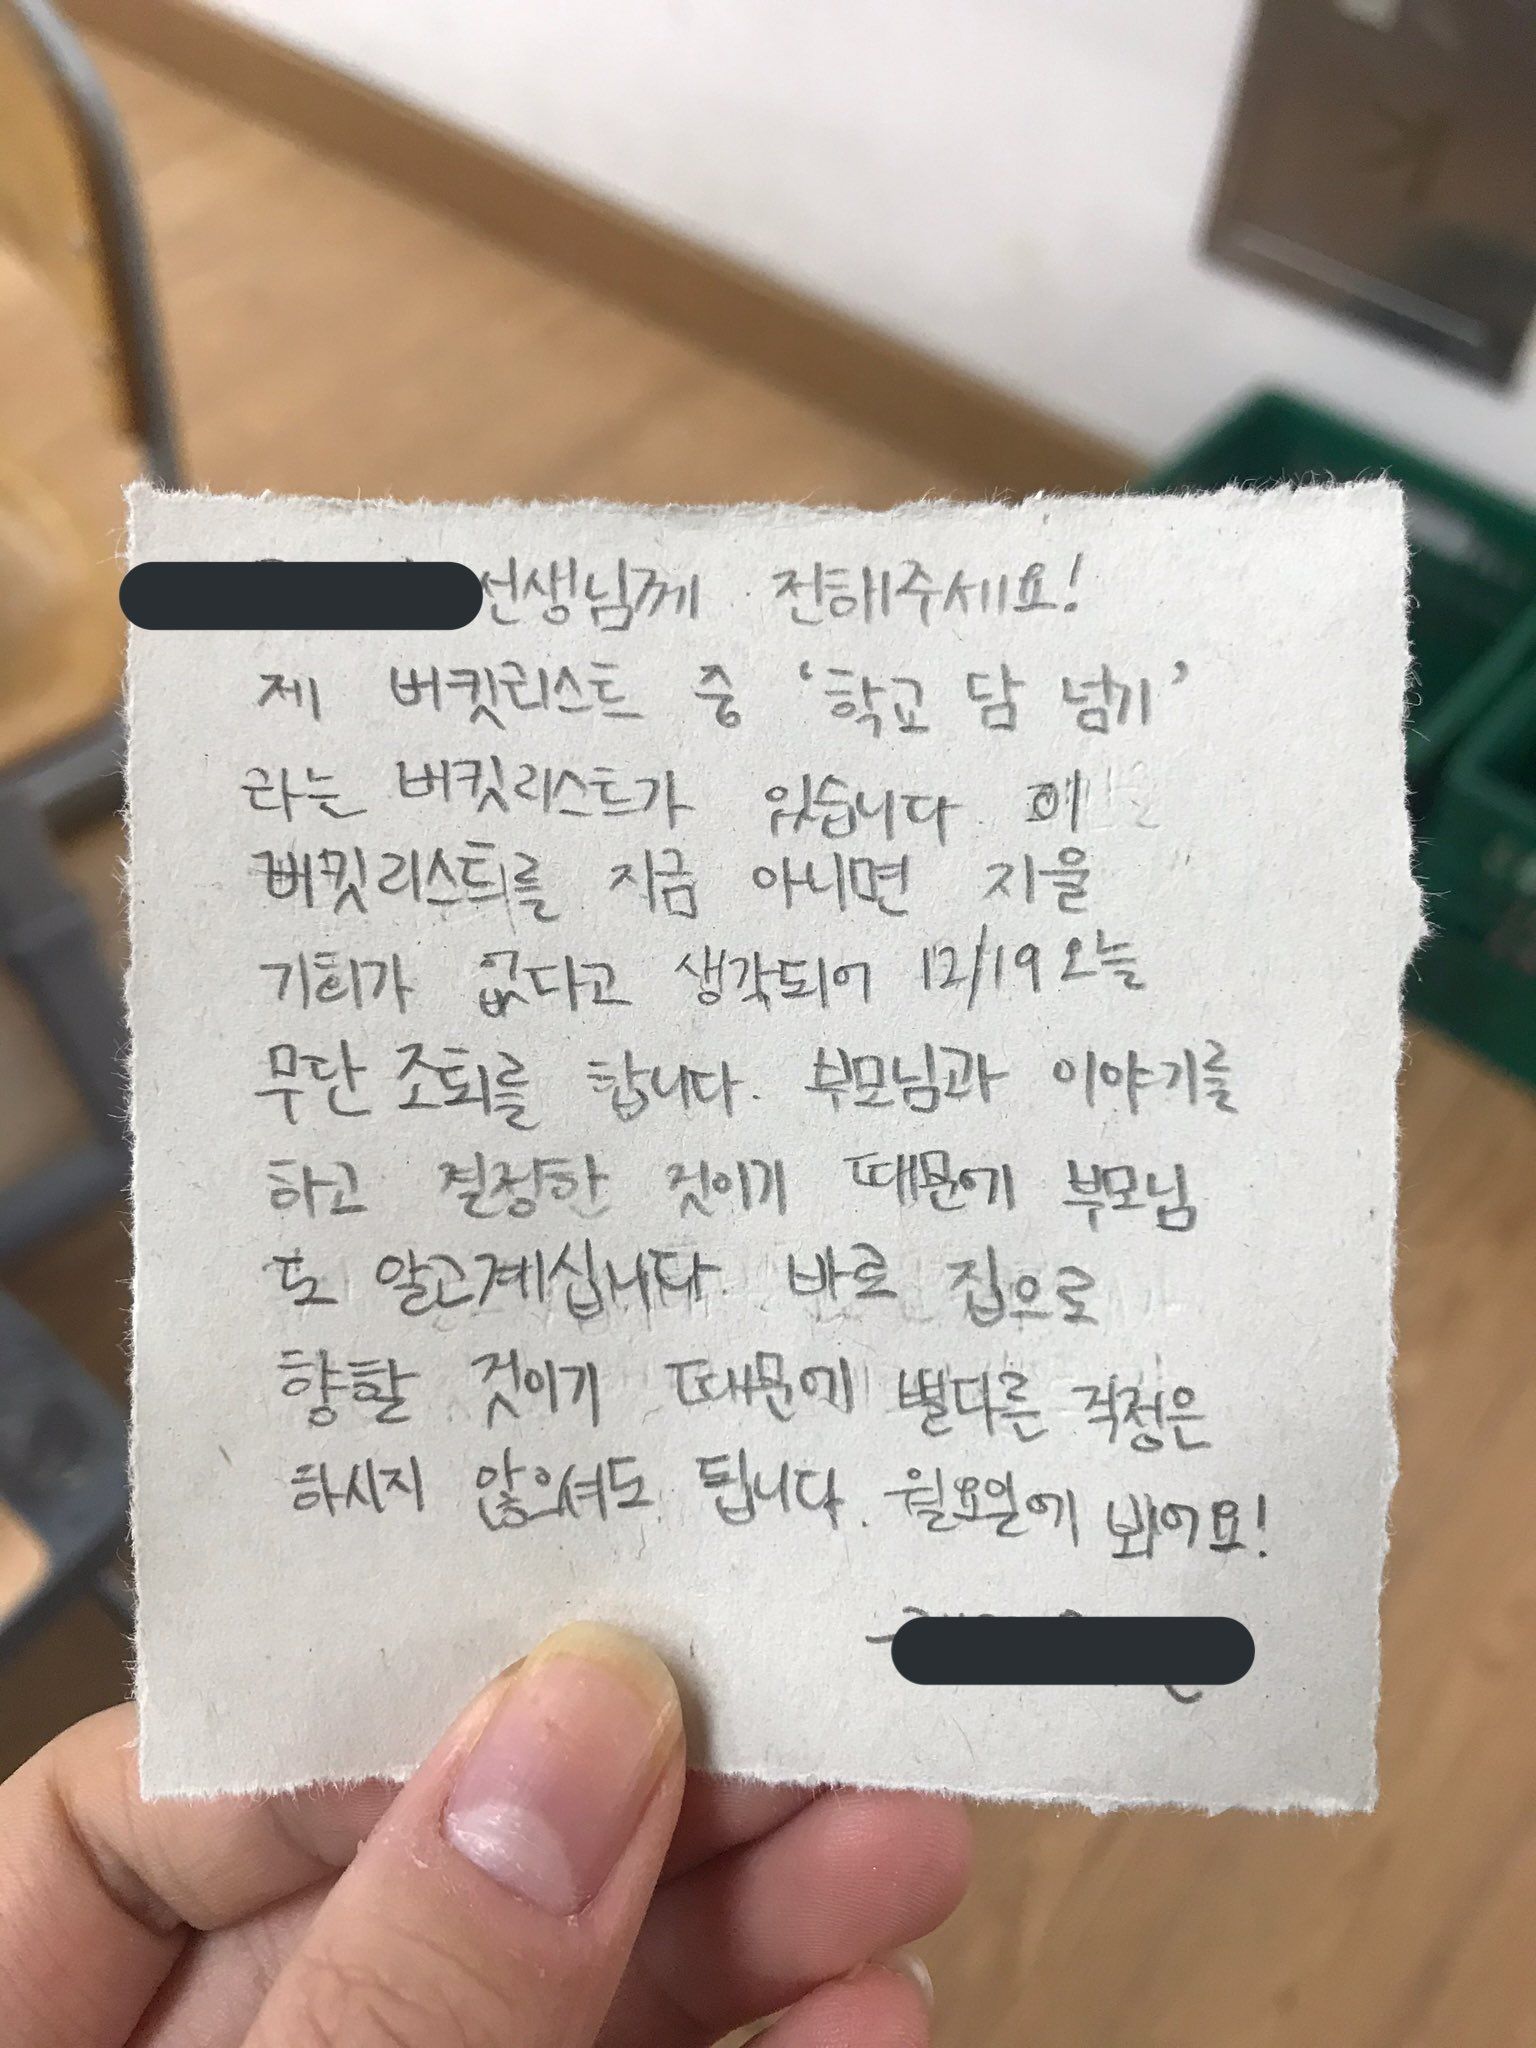 선생님께 전해주세요!
제 버킷리스트 중 '학교 담 넘기'
라는 버킷리스트가 있습니다 이
버킷리스트를 지금 아니면 지울
기회가 없다고 생각되어 12/19 오늘
무단 조퇴를 합니다. 부모님과 이야기를
하고 결정한 것이기 때문에 부모님
도 알고계십니다. 바로 집으로
향할 것이기 때문에 별다른 걱정은
하시지 않으셔도 됩니다. 월요일에 봬어요!